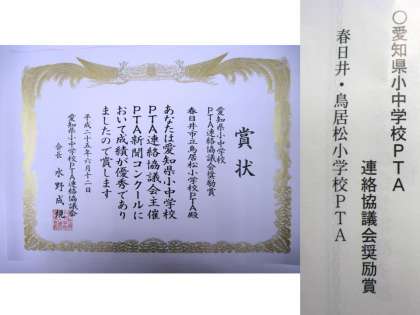 賞状
愛知県小中学校
PTA連絡協議会奨励賞
春日井市立鳥居松小学校PTA殿
あなたは愛知県小中学校
PTA連絡協議会主催
PTA新聞コンクールに
おいて成績が優秀であり
ましたので賞します
平成二十五年六月十二日
愛知県小中学校PTA連絡協議会
会長 水野成規
○愛知県小中学校PTA
連絡協議会奨励賞
春日井・鳥居松小学校PTA